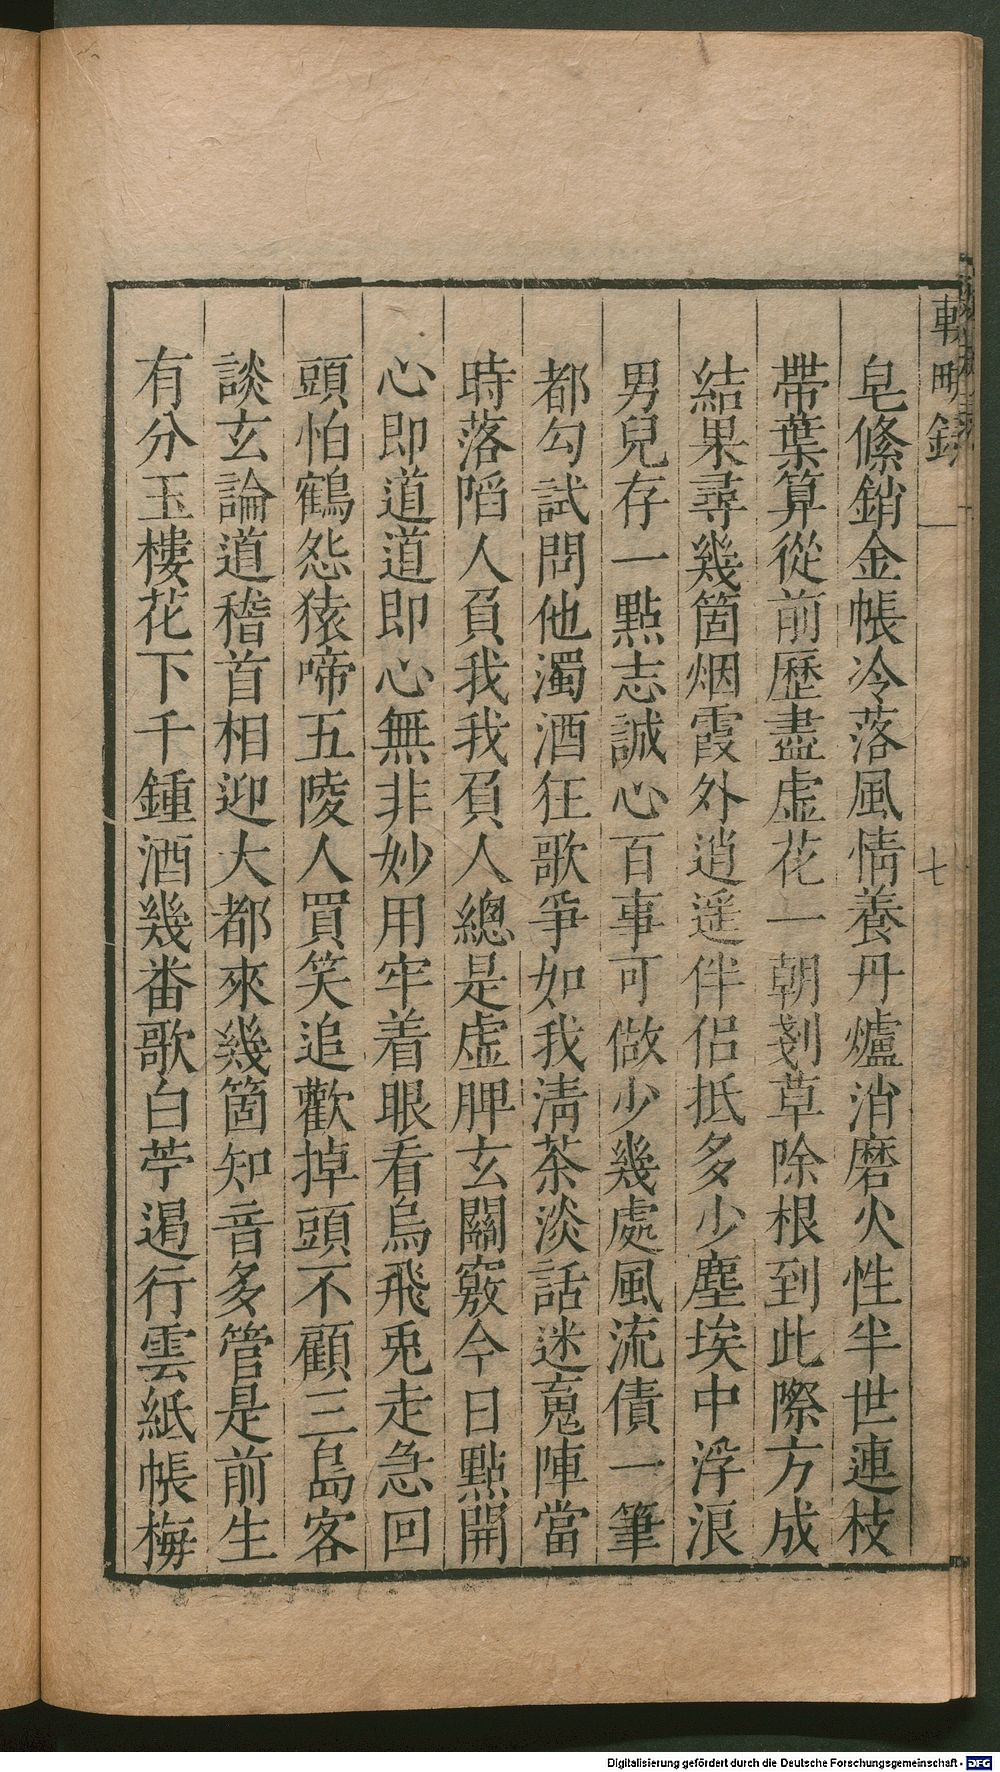 輟畊錄
七
皂絛銷金帳冷落風情養丹爐消磨火性半世連枝
帶葉算從前歷盡虛花一朝剗草除根到此際方成
結果尋幾箇烟霞外逍遥伴侶抵多少塵埃中浮浪
男兒存一點志誠心百事可做少幾處風流債一筆
都勾試問他濁酒狂歌爭如我淸茶淡話迷䰟陣當
時落陷人負我我負人總是虛脾玄關竅今日點開
心即道道即心無非妙用牢着眼看烏飛兎走急回
頭怕鶴怨猿啼五陵人買笑追歡掉頭不顧三島客
談玄論道稽首相迎大都來幾箇知音多管是前生
有分玉樓花下千鍾酒幾番歌白苧遏行雲紙帳梅
Digitalisierung gefördert durch die Deutsche Forschungsgemeinschaft - DFG